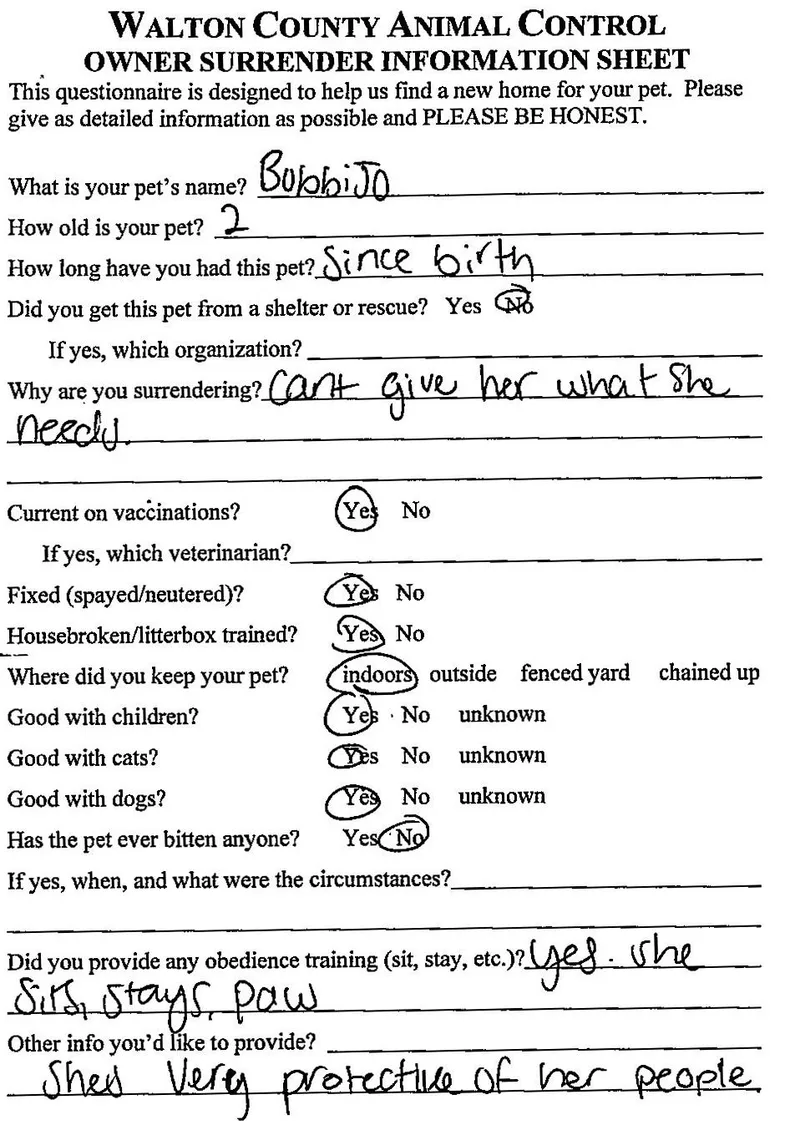 WALTON COUNTY ANIMAL CONTROL
OWNER SURRENDER INFORMATION SHEET
This questionnaire is designed to help us find a new home for your pet. Please
give as detailed information as possible and PLEASE BE HONEST.
What is your pet's name? BobbiJo
How old is your pet? 2
How long have you had this pet? Since birth
Did you get this pet from a shelter or rescue? Yes No
If yes, which organization?
Why are you surrendering? Cant give her what she
needs.
Current on vaccinations? Yes No
If yes, which veterinarian?
Fixed (spayed/neutered)? Yes No
Housebroken/litterbox trained? Yes No
Where did you keep your pet? indoors outside fenced yard chained up
Good with children? Yes No unknown
Good with cats? Yes No unknown
Good with dogs? Yes No unknown
Has the pet ever bitten anyone? Yes No
If yes, when, and what were the circumstances?
Did you provide any obedience training (sit, stay, etc.)? yes. she
sits, stays, paw
Other info you'd like to provide?
Shes very protective of her people